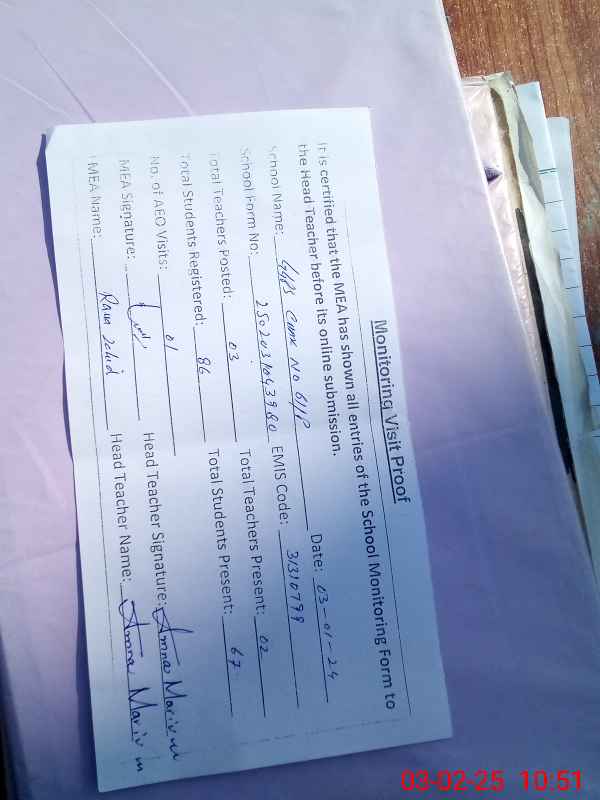 Monitoring Visit Proof
It is certified that the MEA has shown all entries of the School Monitoring Form to
the Head Teacher before its online submission.
School Name: GGPS Chak No 61/P Date: 03-01-24
School Form No: 2502031043980 EMIS Code: 31310799
Total Teachers Posted: 03 Total Teachers Present: 02
Total Students Registered: 86 Total Students Present: 67
No. of AEO Visits: 01
MEA Signature: Head Teacher Signature: Amna Mariam
MEA Name: Rana Zahid Head Teacher Name: Amna Mariam
03-02-25 10:51